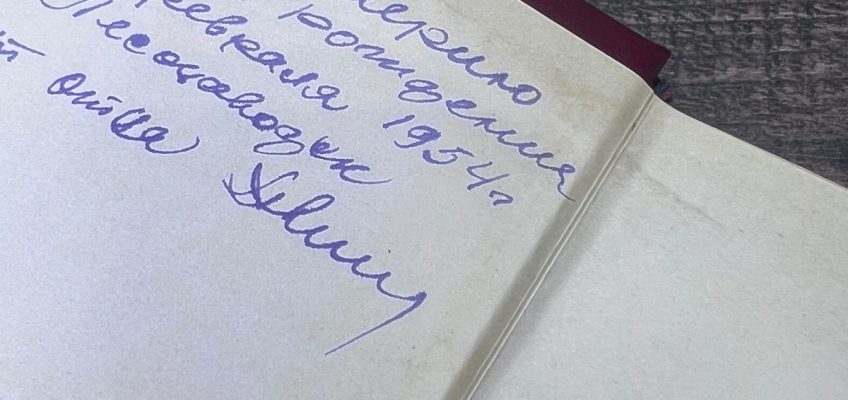 лерию
рождения
февраля 1954г
Лесозаводск
от отца